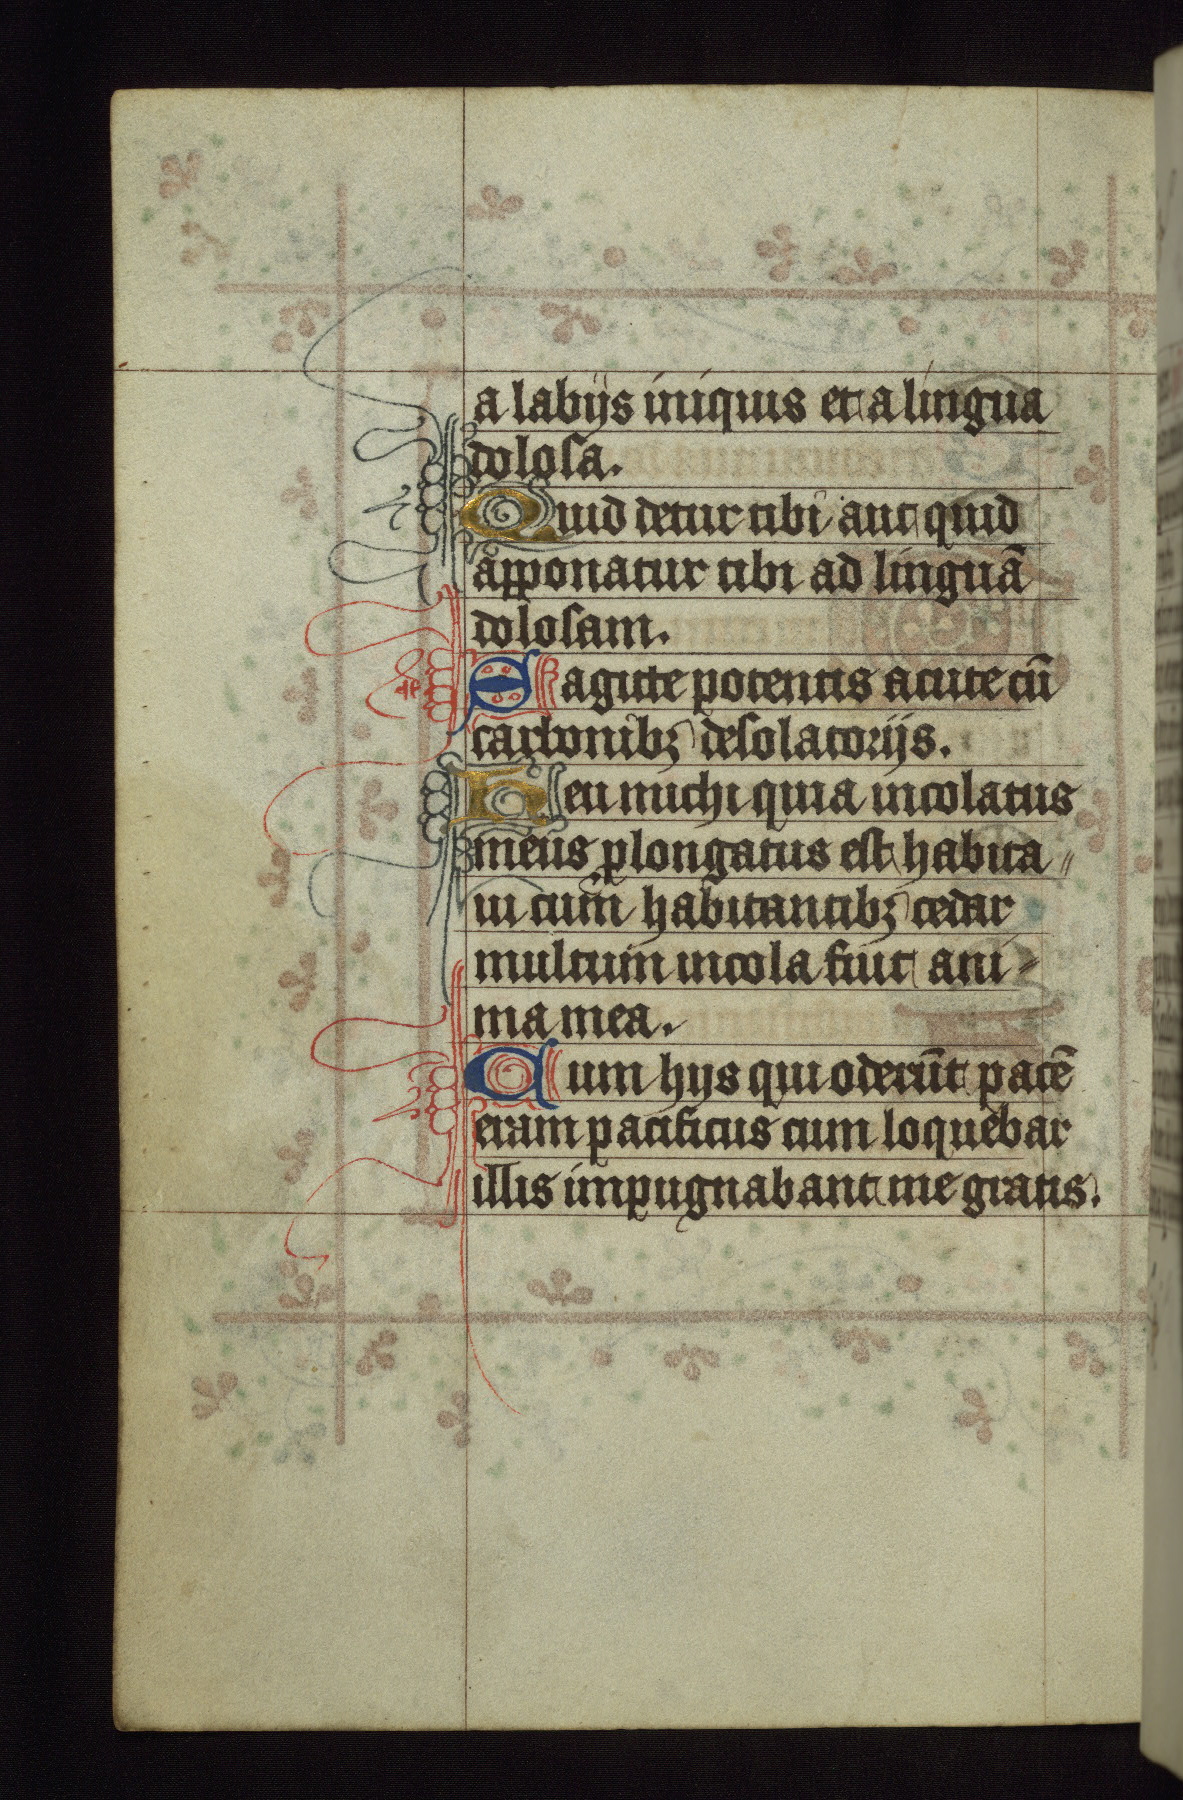 a labijs iniquis et a lingua
dolosa.
Quid detur tibi aut quid
apponatur tibi ad linguā
dolosam.
Sagitte potentis acute cū
carbonibꝫ desolatorijs.
Heu michi quia incolatus
meus ꝓlongatus est habita〃
ui cum habitantibꝫ cedar
multum incola fuit ani-
ma mea.
Cum hijs qui oderūt pacē
eram pacificus cum loquebar
illis impugnabant me gratis.